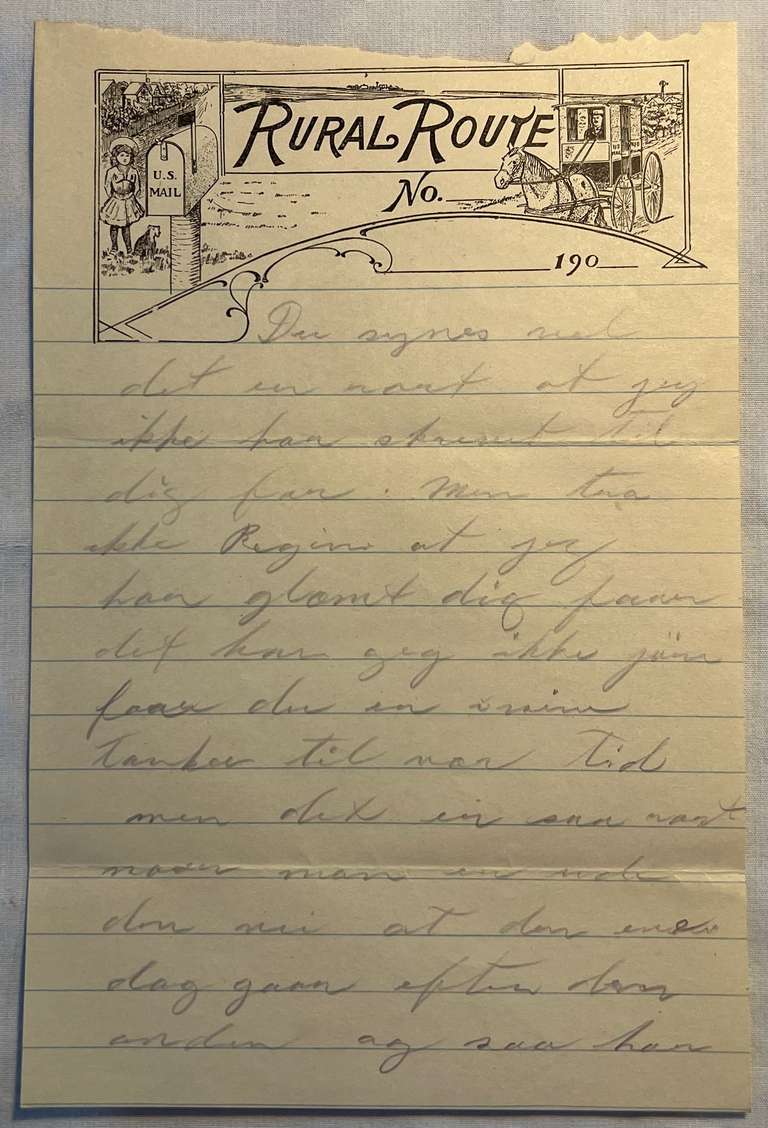 RURAL ROUTE
U.S.
MAIL
No.
190
Du synes vel
det er at jeg
ikke har skrevet til
dig far. Men tro
ikke Regine at jeg
har glemt dig
det kan jeg ikke
faar du er i mine
Tanker til vær Tid
men det er saa
naar man er ude
at den ene
dag gaar efter den
anden og saa har